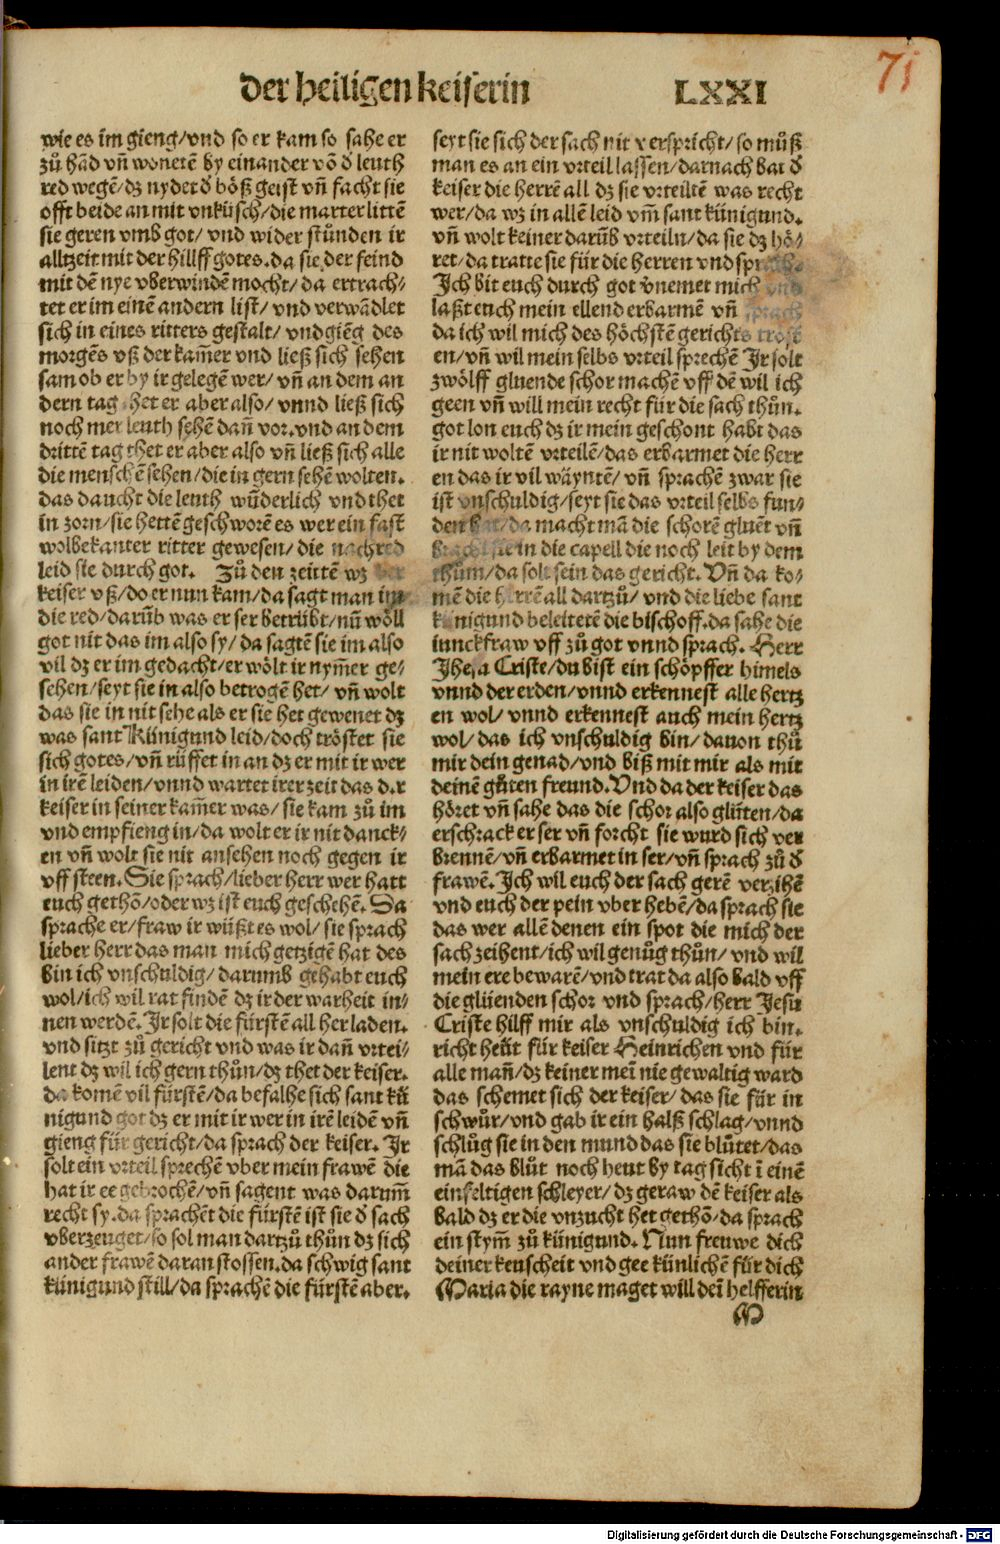 der heiligen keiserin LXXI
71
wie es im gieng/vnd so er kam so sahe er
zů hād vñ wonetē by einander võ d̄ leuth
red wegē/dz nydet d̄ bőß geist vñ facht sie
offt beide an mit vnküsch/die marter littē
sie geren vmb got/ vnd wider stůnden ir
alltzeit mit der hillff gotes. da sie der feind
mit dē nye vberwindē mocht/ da ertrach-
tet er im einē andern list/ vnd verwādlet
sich in eines ritters gestalt/ vnd giēg des
morgēs vß der kam̄er vnd ließ sich sehen
sam ob er by ir gelegē wer/ vñ an dem an
dern tag thet er aber also/ vnnd ließ sich
noch mer leuth sehē dañ vor. vnd an dem
drittē tag thet er aber also vñ ließ sich alle
die menschē sehen/die in gern sehē wolten.
das daucht die leuth wūderlich vnd thet
in zorn/sie hettē geschworē es wer ein fast
wolbekanter ritter gewesen/ die nachred
leid sie durch got. Zů den zeittē wz der
keiser vß/do er nun kam/da sagt man im
die red/darūb was er ser betrübt/nū wőll
got nit das im also sy/da sagtē sie im also
vil dz er im gedacht/er wőlt ir nym̄er ge-
sehen/seyt sie in also betrogē het/ vñ wolt
das sie in nit sehe als er sie het gewenet dz
was sant Künigund leid/doch trőstet sie
sich gotes/vñ rüffet in an dz er mit ir wer
in irē leiden/vnnd wartet irer zeit das der
keiser in seiner kam̄er was/sie kam zů im
vnd empfieng in/da wolt er ir nit danck-
en vñ wolt sie nit ansehen noch gegen ir
vff steen. Sie sprach/lieber herr wer hatt
euch gethõ/oder wz ist euch geschehē. Da
sprache er/fraw ir wüßt es wol/sie sprach
lieber herr das man mich getzigē hat des
bin ich vnschuldig/ darumb gehabt euch
wol/ich wil rat findē dz ir der warheit in-
nen werdē. Ir solt die fürstē all her laden.
vnd sitzt zů gericht vnd was ir dañ vrtei-
lent dz wil ich gern thůn/dz thet der keiser.
da komē vil fürstē/da befalhe sich sant kü
nigund got dz er mit ir wer in irē leidē vñ
gieng für gericht/da sprach der keiser. Ir
solt ein vrteil sprechē vber mein frawē die
hat ir ee gebrochē/vñ sagent was darum̄
recht sy. da sprachēt die fürstē ist sie d̄ sach
vberzeuget/so sol man dartzů thůn dz sich
ander frawē daran stossen. da schwig sant
künigund still/da sprachē die fürstē aber.
seyt sie sich der sach nit verspricht/so můß
man es an ein vrteil lassen/darnach bat d̄
keiser die herrē all dz sie vrteiltē was recht
wer/da wz in allē leid vm̄ sant künigund.
vñ wolt keiner darūb vrteiln/da sie dz hő-
ret/da tratte sie für die herren vnd sprache.
Ich bit euch durch got vnemet mich vnd
laßt euch mein ellend erbarmē vñ sprach
da ich wil mich des hőchstē gerichts trőst
en/vñ wil mein selbs vrteil sprechē Ir solt
zwőlff gluende schor machē vff dē wil ich
geen vñ will mein recht für die sach thůn.
got lon euch dz ir mein geschont habt das
ir nit woltē vrteilē/das erbarmet die herr
en das ir vil wäyntē/ vñ sprachē zwar sie
ist vnschuldig/seyt sie das vrteil selbs fun-
den hat/da macht mā die schorē gluēt vñ
bracht sie in die capell die noch leit by dem
thům/da solt sein das gericht. Vñ da ko-
mē die herrē all dartzů/ vnd die liebe sant
künigund beleitetē die bischoff. da sahe die
iunckfraw vff zů got vnnd sprach. Herr
Jhesa Criste/du bist ein schőpffer himels
vnnd der erden/vnnd erkennest alle hertz
en wol/ vnnd erkennest auch mein hertz
wol/das ich vnschuldig bin/dauon thů
mir dein genad/vnd biß mit mir als mit
deinē gůten freund. Vnd da der keiser das
hőret vñ sahe das die schor also glūten/da
erschrack er ser vñ forcht sie wurd sich ver
brennē/vñ erbarmet in ser/vñ sprach zů d̄
frawē. Ich wil euch der sach gerē verzihē
vnd euch der pein vber hebē/da sprach sie
das wer allē denen ein spot die mich der
sach zeihent/ich wil genůg thůn/ vnd wil
mein ere bewarē/vnd trat da also bald vff
die glüenden schor vnd sprach/herr Jesu
Criste hilff mir als vnschuldig ich bin.
richt heüt für keiser Heinrichen vnd für
alle mañ/dz keiner meī nie gewaltig ward
das schemet sich der keiser/das sie für in
schwůr/vnd gab ir ein halß schlag/vnnd
schlůg sie in den mund das sie blůtet/das
mā das blůt noch heut by tag sicht ī einē
einfeltigen schleyer/dz geraw dē keiser als
bald dz er die vnzucht het gethõ/da sprach
ein stym̄ zů künigund. Nun freuwe dich
deiner keuscheit vnd gee künlichē für dich
Maria die rayne maget will deī helfferin
M
Digitalisierung gefördert durch die Deutsche Forschungsgemeinschaft - DFG